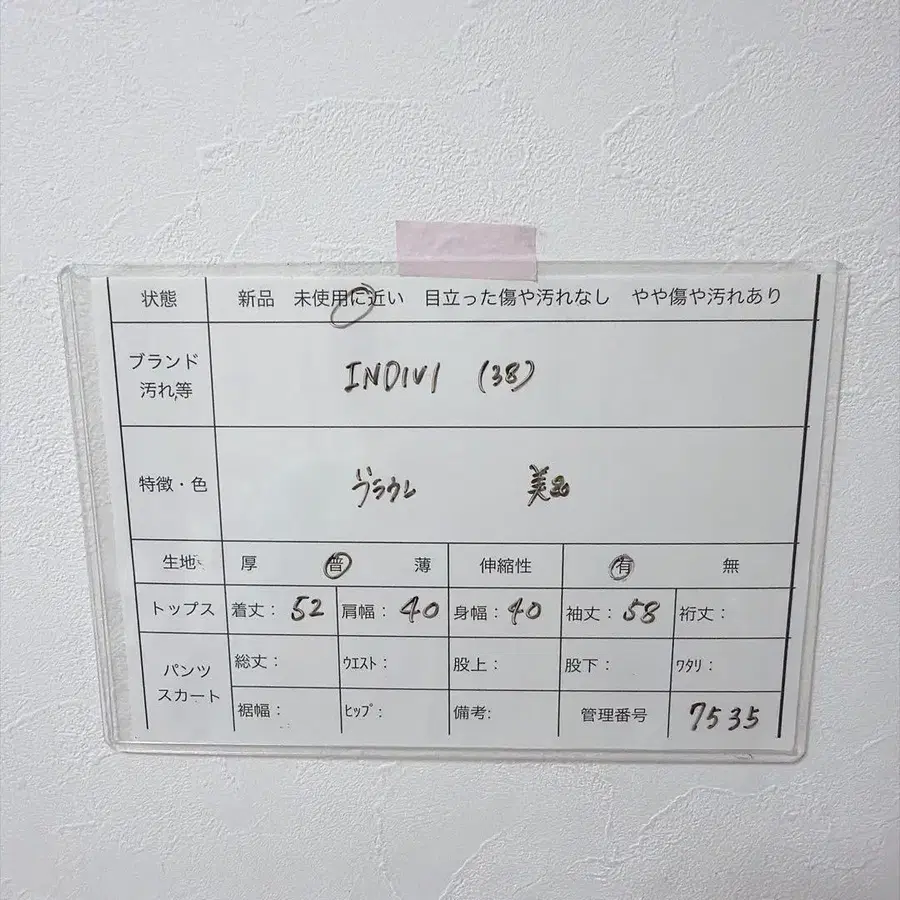 状態 新品 未使用に近い 目立った傷や汚れなし やや傷や汚れあり
ブランド
汚れ等 INDIVI (38)
特徴・色 ブラウス 美品
生地 厚 普 薄 伸縮性 有 無
トップス 着丈: 52 肩幅: 40 身幅: 40 袖丈: 58 裄丈:
パンツ
スカート
総丈: ウエスト: 股上: 股下: ワタリ:
裾幅: ヒップ: 備考: 管理番号 7535